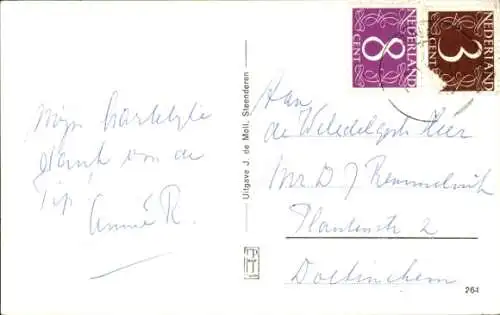 NEDERLAND
8
CENT
NEDERLAND
3
CENT
Mijn hartelijke
dank voor de
Tip!
Annie R.
Uitgave J. de Moll, Steenderen
Aan
de Weledelgestr Heer
Mr D J Remmelink
Plantenstr 2
Doetinchem
264